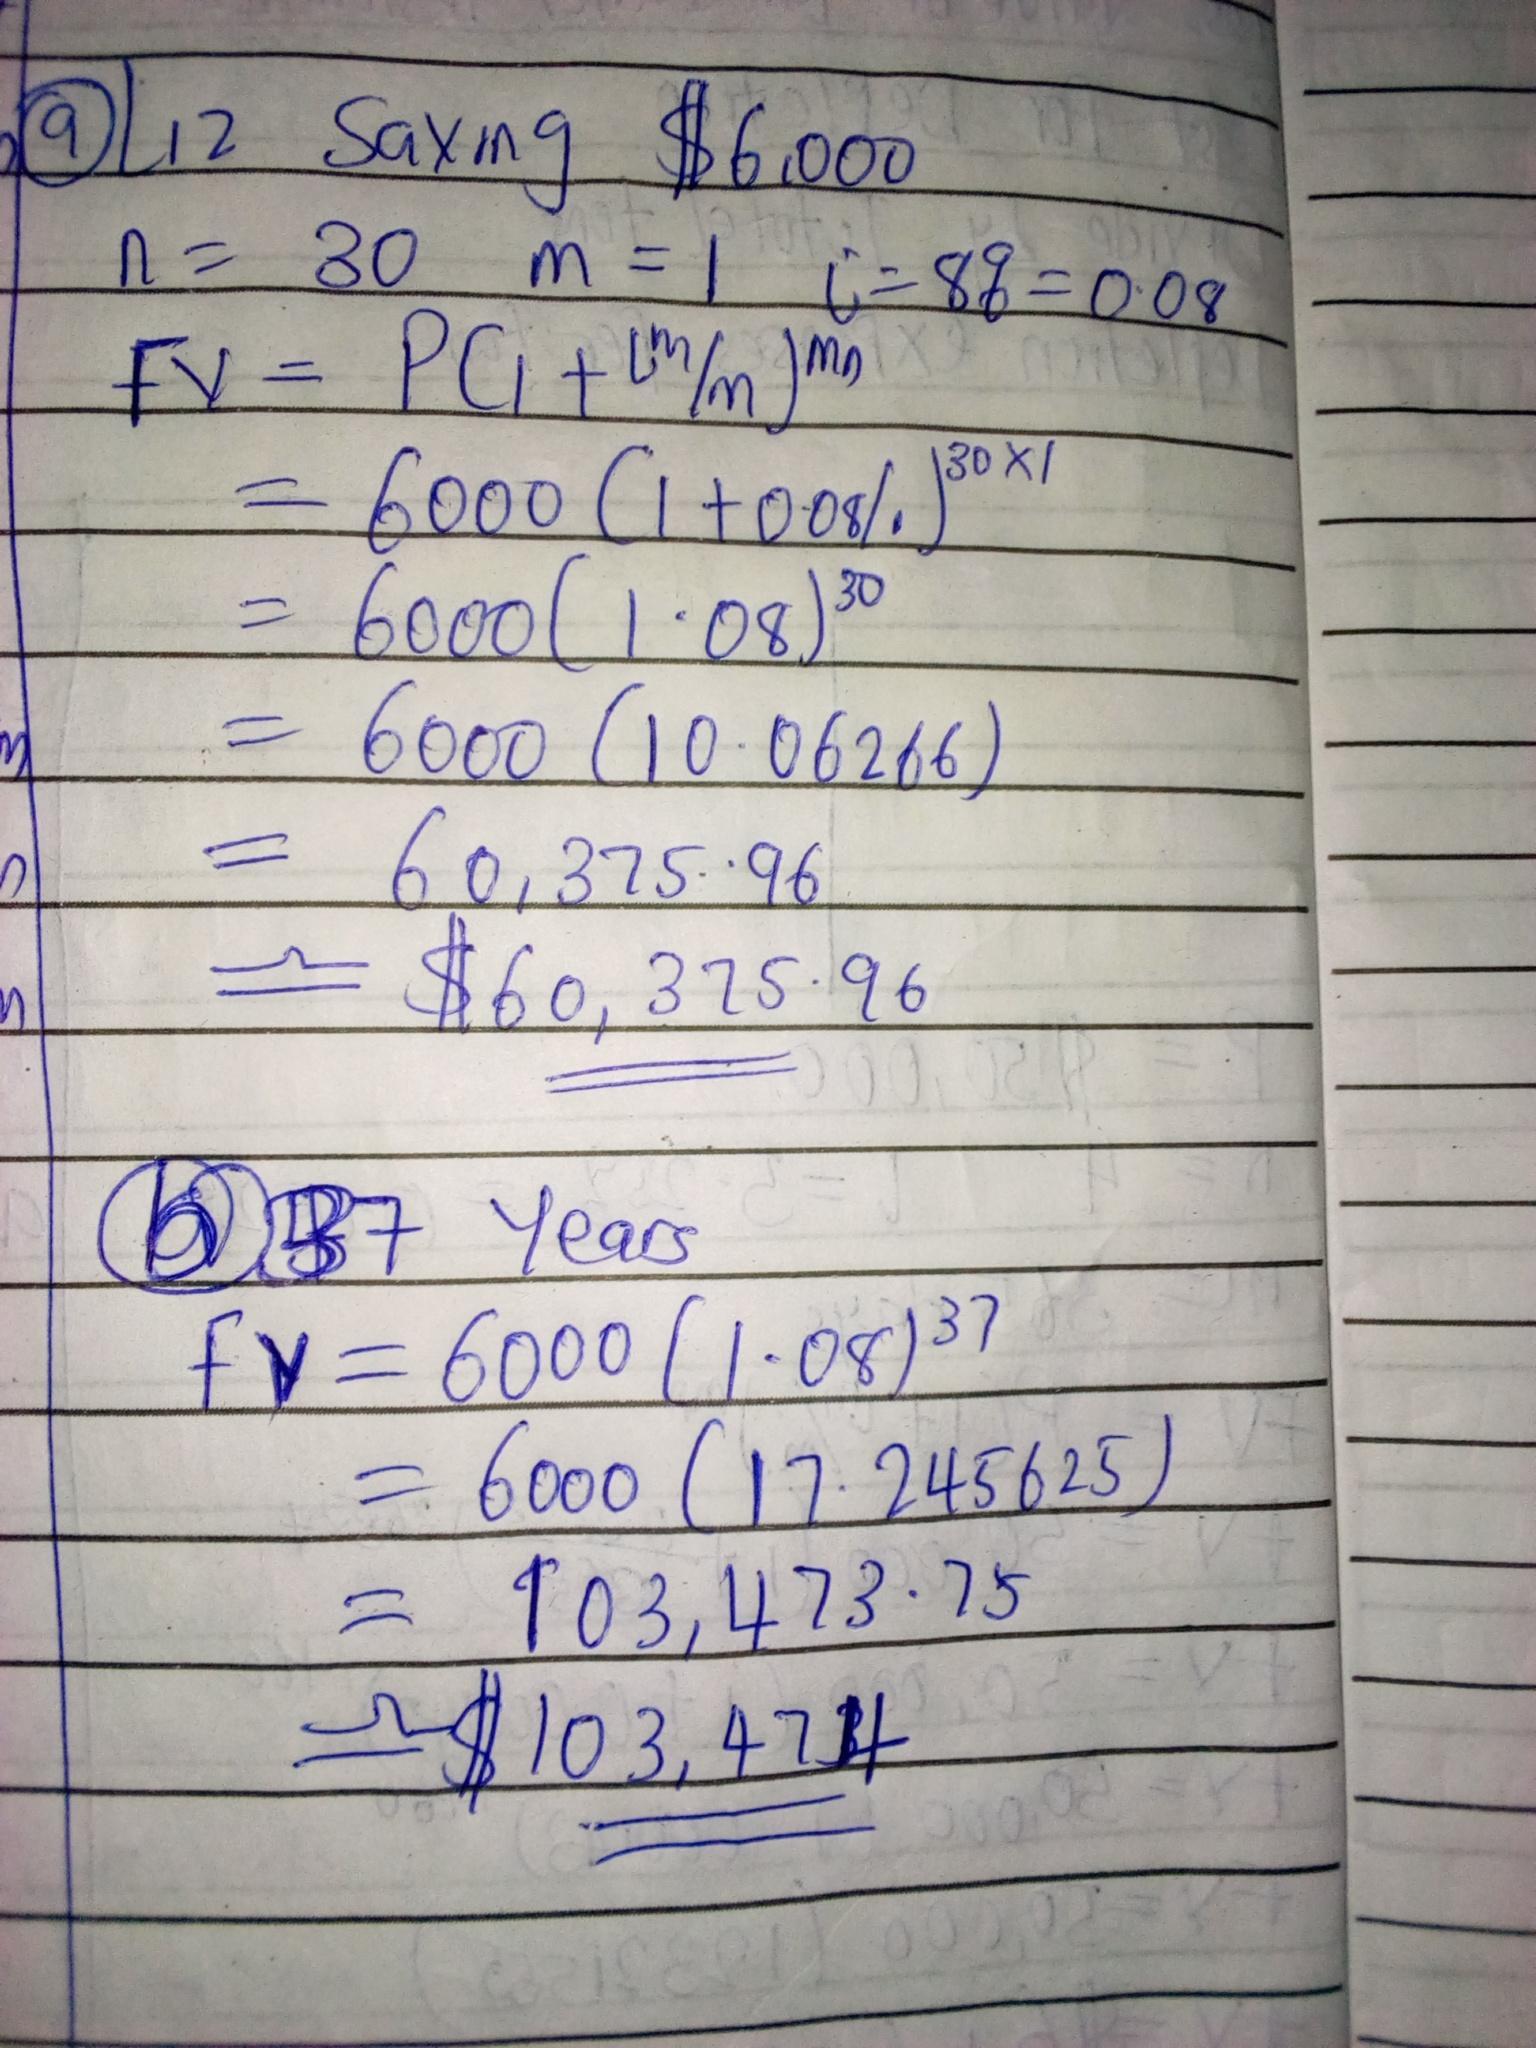 (a) L12 Saving $6,000
n = 30 m = 1 i = 8% = 0.08
FV = P(1 + im/m)mn
= 6000 (1 + 0.08/1)30×1
= 6000 (1.08)30
= 6000 (10.06266)
= 60,375.96
≃ $60,375.96
(b) 37 Years
FV = 6000 (1.08)37
= 6000 (17.245625)
= 103,473.75
≃ $103,474